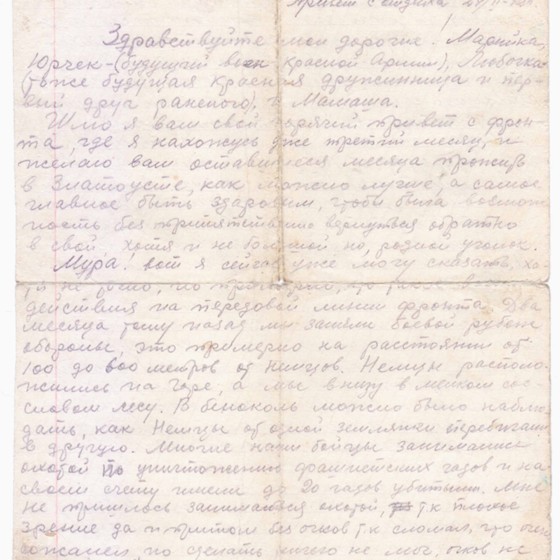 Привет с фронта
Здравствуйте мои дорогие! Марийка,
Юрчек-(будущий воен Красной Армии), Любочка
(тоже будущая красная дружинница и пер-
вый друг раненого), и Мамаша.
Шлю я вам свой горячий привет с фрон-
та, где я нахожусь уже третий месяц, и
желаю вам оставшиеся месяца прожить
в Златоусте, как можно лучше, а самое
главное быть здоровым, чтобы была возмож-
ность без препятственно вернуться обратно
в свой хотя и не большой но, родной уголок.
Мура! вот я сейчас уже могу сказать, хо-
тя не точно, но примерно, что такое
действия на передовой линии фронта. Два
месяца тому назад мы заняли боевой рубеж
обороны, это примерно на расстоянии от
100 до 600 метров от немцов. Немцы располо-
жились на горе, а мы в низу в мелком со-
словом лесу. В бенокль можно было наблю-
дать, как Немцы от одной землянки перебегали
в другую. Многие наши бойцы занимались
охотой по уничтожению фашистских гадов и на
своем счету имели до 20 гадов убитыми. Мне
не пришлось заниматься охотой, т.к плохое
зрение да и притом без очков т.к сломал, что очень
но сделать ничего не мог, очков не